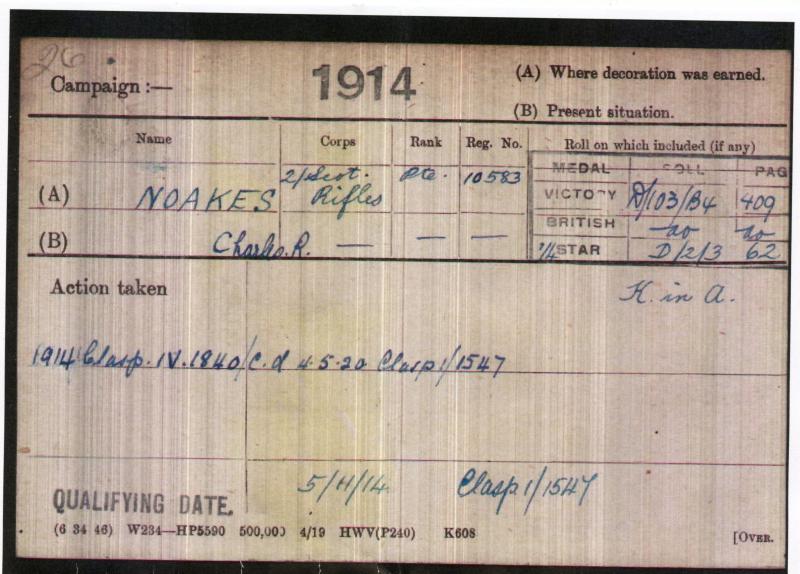 26
Campaign :— 1914 (A) Where decoration was earned.
(B) Present situation.
Name Corps Rank Reg. No. Roll on which included (if any)
MEDAL ROLL PAG
(A) NOAKES 2/Scot. Rifles Pte. 10583
VICTORY D/103/B4 409
BRITISH -do- -do-
(B) Charles. R. — — —
1/4 STAR D/2/3 62
Action taken K. in A.
1914 Clasp. IV. 1840/C. d 4.5.20 Clasp 1/1547
5/11/14 Clasp 1/1547
QUALIFYING DATE.
(6 34 46) W234—HP5590 500,000 4/19 HWV(P240) K608
[OVER.